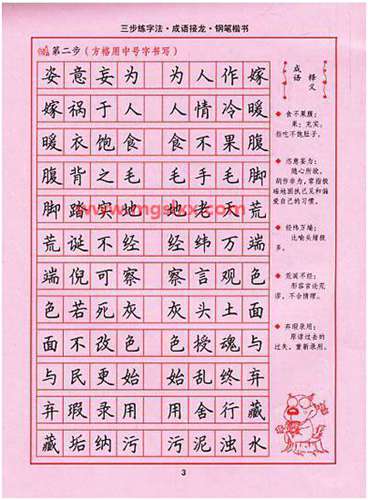 三步练字法·成语接龙·钢笔楷书
第二步（方格用中号字书写）
姿意妄为 为人作嫁
嫁祸于人 人情冷暖
暖衣饱食 食不果腹
腹背之毛 毛手毛脚
脚踏实地 地老天荒
荒诞不经 经纬万端
端倪可察 察言观色
色若死灰 灰头土面
面不改色 色授魂与
与民更始 始乱终弃
弃瑕录用 用舍行藏
藏垢纳污 污泥浊水
成语
释义
食不果腹：
果：充实。
指吃不饱肚子。
恣意妄为：
随心所欲，
胡作非为，常指放
纵地固执己见和偏
爱自己的习惯。
经纬万端：
比喻头绪很
多。
荒诞不经：
形容言论荒
谬，不合情理。
弃瑕录用：
原谅过去的
过失，重新录用。
3